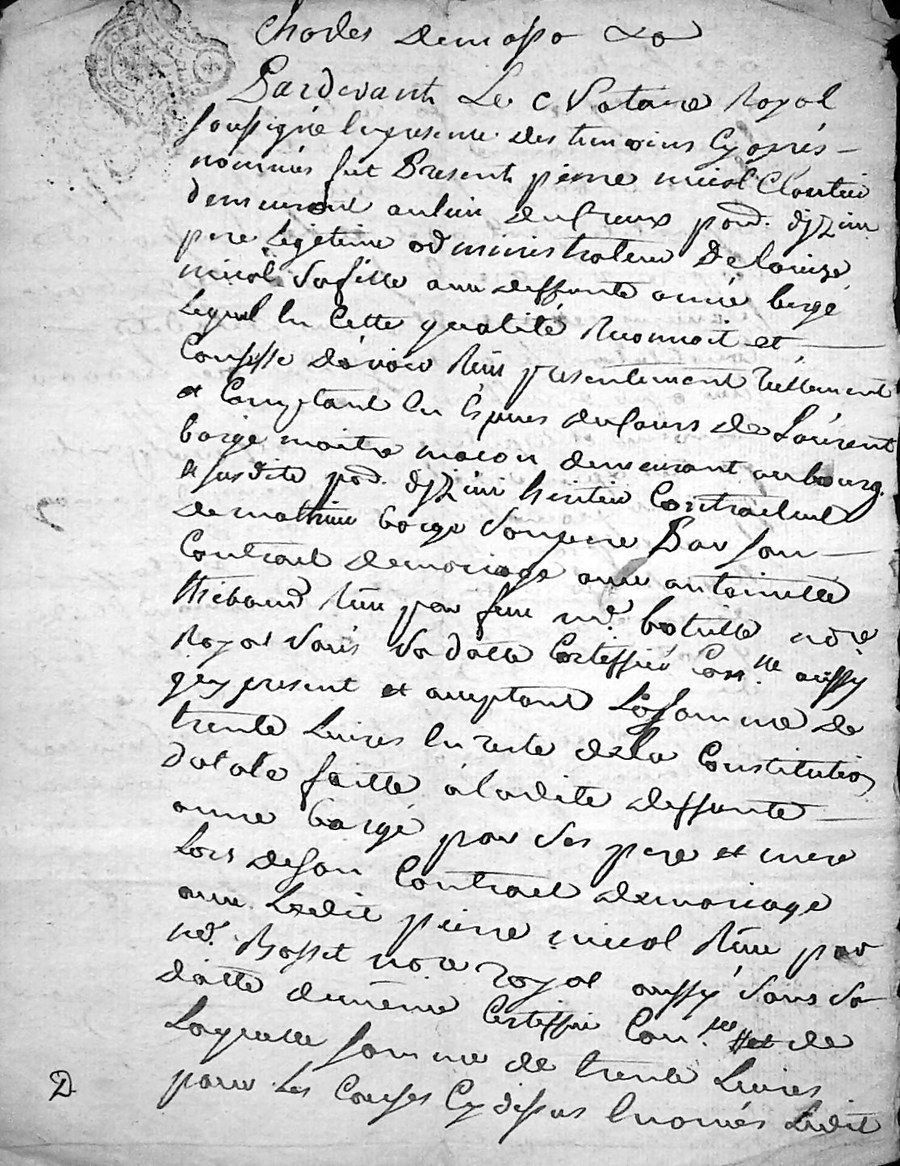 Pardevant Le Notaire Royal
soussigné en presence des temoins cy aprés
nommés fut Present pierre nicol Cloutier
demeurant au lieu du freux
pere Legitime administrateur De louize
nicol Sa fille avec deffunte anne bargé
Lequel en Cette qualité reconnoit et
Confesse d'avoir reçu presentement réellement
et Comptant en Especes du Cours de Laurent
bargé maitre macon demeurant au bourg
et susdite heritier Contractuel
de mathieu bargé Son pere Par son
Contract de mariage avec antoinette
thiebaud reçu par feu me. nore
Royal Sous Sa datte Certiffié Con.lle aussy
present et aceptant La somme de
trente Livres en reste de la Constitution
dotale faitte à la dite deffunte
anne bargé par Ses pere et mere
Lors de son Contract de mariage
avec Ledit pierre nicol reçu par
me. Rosset nore royal aussy Sous Sa
datte de même Certiffié Con.lle de
Laquelle somme de trente Livres
pour Les Causes Cy dessus Enoncés Ledit